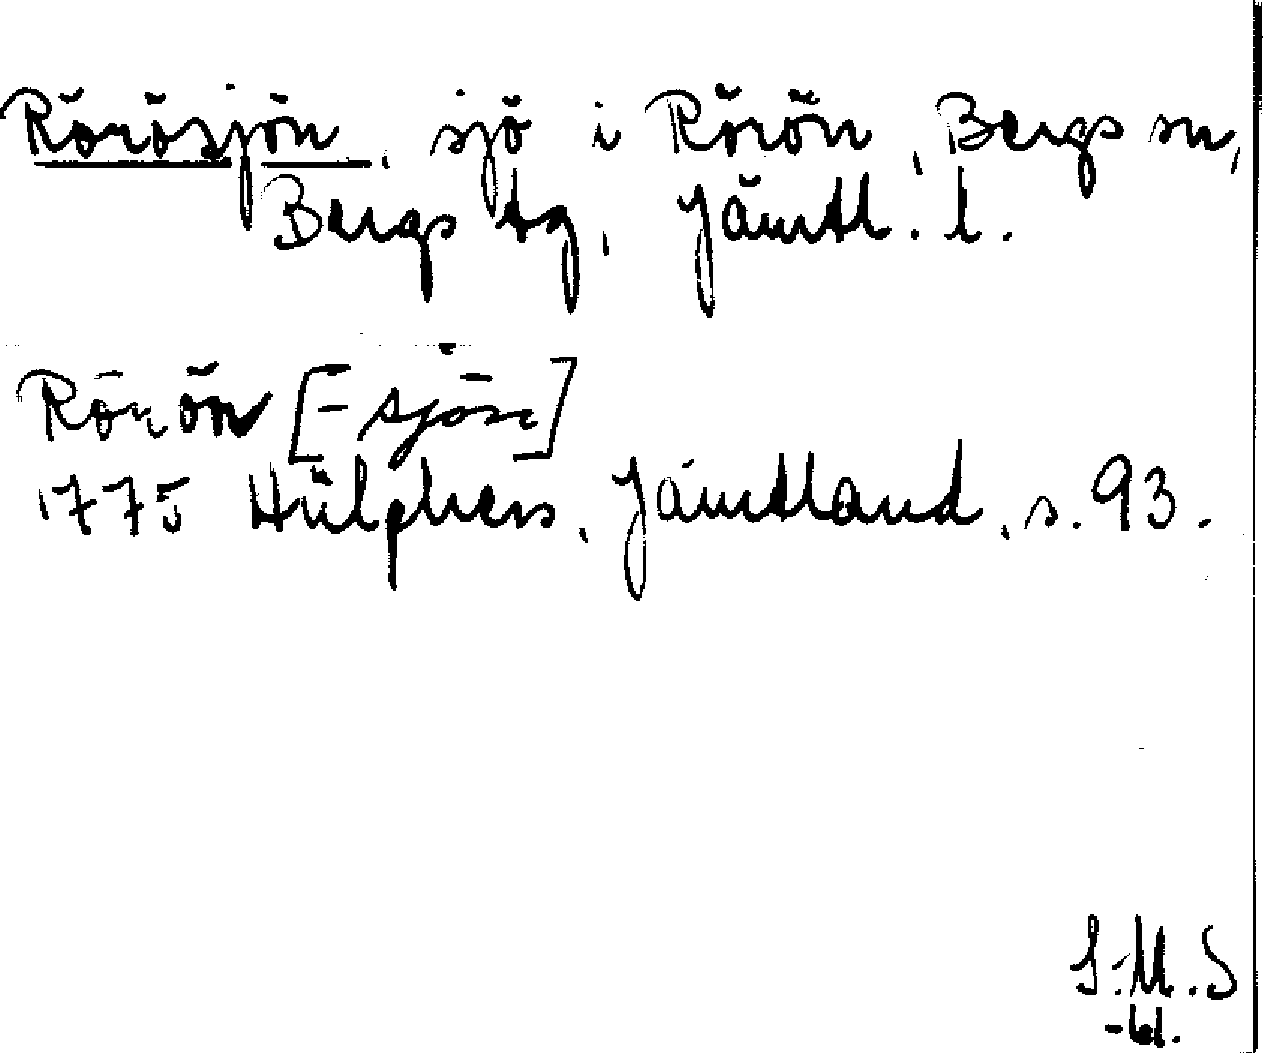 Rörösjön, sjö i Rörön, Bergs sn,
Bergs tg, Jämtl. l.
Rörön [-sjön]
1775 Hülphers, Jämtland, s. 93.
S.M.S
-61.